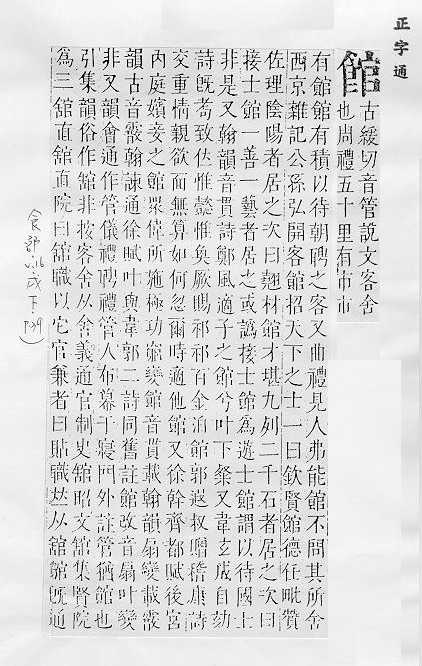 正字通
館
古緩切音管說文客舍
也周禮五十里有市市
有館館有積以待朝聘之客又曲禮見人弗能館不問其所舍
西京雜記公孫弘開客館招天下之士一曰欽賢館德任毗贊
佐理陰陽者居之次曰翹材館才堪九列二千石者居之次曰
接士館一善一藝者居之或譌接士館爲遊士館謂以待國士
非是又翰韻音貫詩鄭風適子之館兮叶下粲又韋玄成自劾
詩旣耇致位惟懿惟奐厥賜祁祁百金洎館郭遐叔贈嵇康詩
交重情親欲面無算如何忽爾時適他館又徐幹齊都賦後宮
內庭嬪妾之館眾偉所施極功窮變館音貫載翰韻扇變載霰
韻古音霰翰諫通徐賦叶奐韋郭二詩同舊註館改音扇叶變
非又韻會通作管儀禮聘禮管人布幕于寢門外註管猶館也
引集韻俗作舘非按客舍从舍義通官制史舘昭文舘集賢院
爲三舘直舘直院曰舘職以它官兼者曰貼職𠀤从舘館旣通
食部 戌下 P39